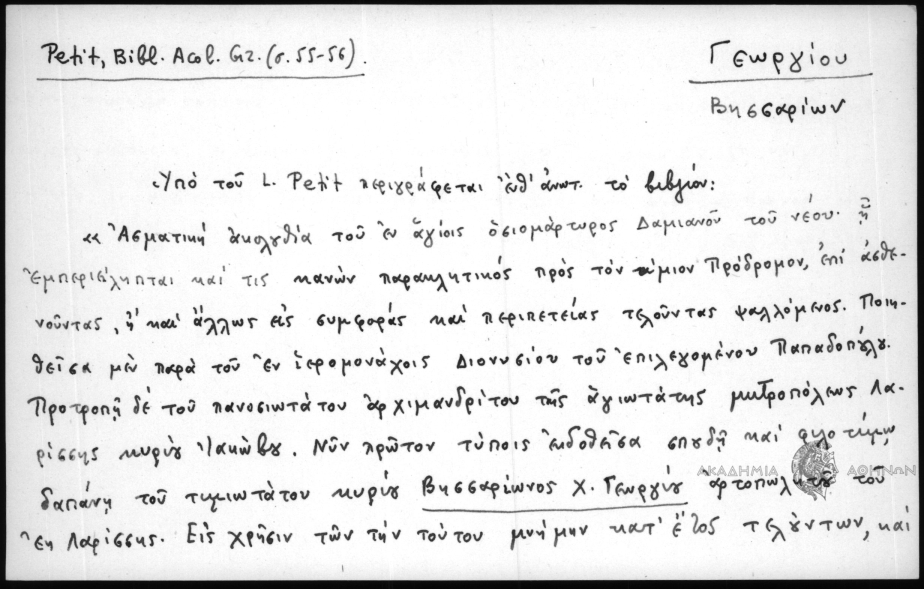 Petit, Bibl. Acol. Gr. (σ. 55-56).
Γεωργίου
Βησσαρίων
Ὑπό τοῦ L. Petit περιγράφεται ἐνθ' ἀνωτ. τό βιβλίον:
« Ἀσματική ἀκολουθία τοῦ ἐν ἁγίοις ὁσιομάρτυρος Δαμιανοῦ τοῦ νέου· ᾗ
ἐμπεριείληπται καί τις κανών παρακλητικός πρός τόν τίμιον Πρόδρομον, ἐπί ἀσθε-
νοῦντας, ἤ καί ἄλλως εἰς συμφοράς καί περιπετείας τελοῦντας ψαλλόμενος. Ποιη-
θεῖσα μέν παρά τοῦ ἐν ἱερομονάχοις Διονυσίου τοῦ ἐπιλεγομένου Παπαδοπούλου.
Προτροπῇ δέ τοῦ πανοσιωτάτου ἀρχιμανδρίτου τῆς ἁγιωτάτης μητροπόλεως Λα-
ρίσσης κυρίου Ἰακώβου. Νῦν πρῶτον τύποις ἐκδοθεῖσα σπουδῇ καί φιλοτίμῳ
δαπάνῃ τοῦ τιμιωτάτου κυρίου Βησσαρίωνος Χ. Γεωργίου ἀρτοπωλητοῦ τοῦ
ἐκ Λαρίσσης. Εἰς χρῆσιν τῶν τήν τούτου μνήμην κατ' ἔτος τελούντων, καί
ΑΚΑΔΗΜΙΑ ΑΘΗΝΩΝ